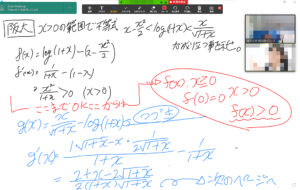 阪大 x>0の範囲で不等式 x-x²/2<log(1+x)<x/√1+x
が成り立つ事を示せ。
f(x)=log(1+x)-(x-x²/2)
f'(x)=1/1+x-(1-x)
=x²/1+x>0 (x>0)
ここまでOK ここから
f(x), x≧0
f(0)=0 x>0
f(x)>0
g(x)=x/√1+x-log(1+x)
g'(x)=1·√1+x-x·1/2√1+x/1+x-1/1+x
=2+x-2√1+x/2(1+x)√1+x
次のページへ